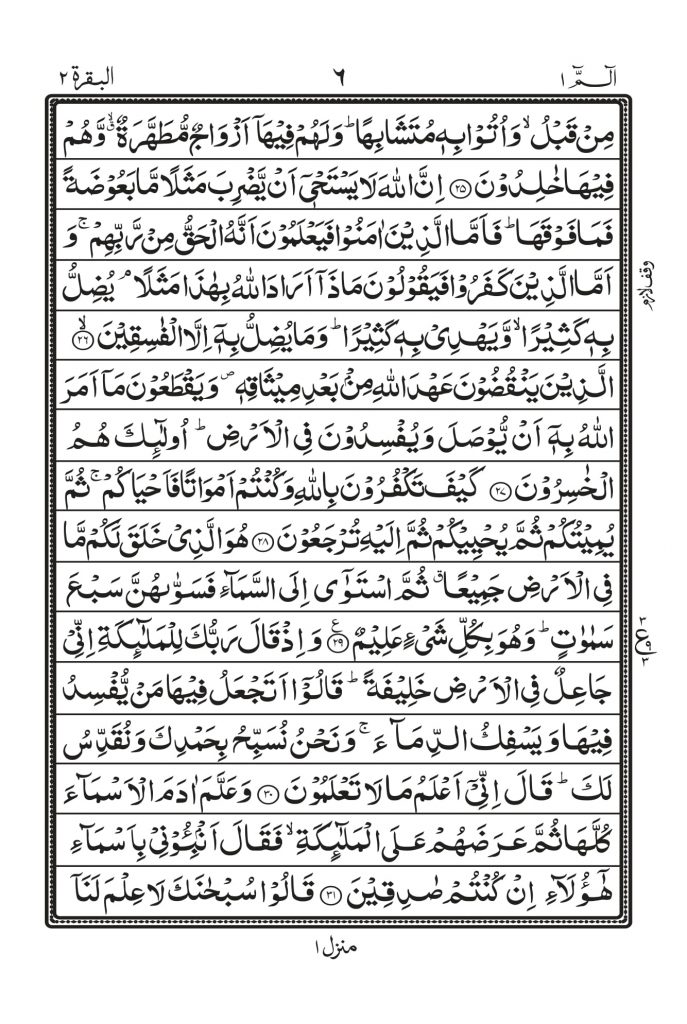 الٓـمّٓ ١ ٦ البقرة ٢
مِنۡ قَبۡلُ ۙ وَاُتُوۡا بِهٖ مُتَشَابِهًا ؕ وَلَهُمۡ فِيۡهَآ اَزۡوَاجٌ مُّطَهَّرَةٌ ۙۗ وَّهُمۡ
فِيۡهَا خٰلِدُوۡنَ ﴿٢٥﴾ اِنَّ اللّٰهَ لَا يَسۡتَحۡىٖۤ اَنۡ يَّضۡرِبَ مَثَلًا مَّا بَعُوۡضَةً
فَمَا فَوۡقَهَا ؕ فَاَمَّا الَّذِيۡنَ اٰمَنُوۡا فَيَعۡلَمُوۡنَ اَنَّهُ الۡحَقُّ مِنۡ رَّبِّهِمۡ ۚ وَ
اَمَّا الَّذِيۡنَ كَفَرُوۡا فَيَقُوۡلُوۡنَ مَاذَآ اَرَادَ اللّٰهُ بِهٰذَا مَثَلًا ۘ يُضِلُّ
وقف لازم
بِهٖ كَثِيۡرًا ۙ وَّيَهۡدِىۡ بِهٖ كَثِيۡرًا ؕ وَمَا يُضِلُّ بِهٖۤ اِلَّا الۡفٰسِقِيۡنَ ۙ﴿٢٦﴾
الَّذِيۡنَ يَنۡقُضُوۡنَ عَهۡدَ اللّٰهِ مِنۡۢ بَعۡدِ مِيۡثَاقِهٖ ۪ وَيَقۡطَعُوۡنَ مَآ اَمَرَ
اللّٰهُ بِهٖۤ اَنۡ يُّوۡصَلَ وَيُفۡسِدُوۡنَ فِى الۡاَرۡضِ ؕ اُولٰٓئِكَ هُمُ
الۡخٰسِرُوۡنَ ﴿٢٧﴾ كَيۡفَ تَكۡفُرُوۡنَ بِاللّٰهِ وَكُنۡتُمۡ اَمۡوَاتًا فَاَحۡيَاكُمۡ ۚ ثُمَّ
يُمِيۡتُكُمۡ ثُمَّ يُحۡيِيۡكُمۡ ثُمَّ اِلَيۡهِ تُرۡجَعُوۡنَ ﴿٢٨﴾ هُوَ الَّذِىۡ خَلَقَ لَكُمۡ مَّا
فِى الۡاَرۡضِ جَمِيۡعًا ۗ ثُمَّ اسۡتَوٰٓى اِلَى السَّمَآءِ فَسَوّٰٮهُنَّ سَبۡعَ
سَمٰوٰتٍ ؕ وَهُوَ بِكُلِّ شَىۡءٍ عَلِيۡمٌ ﴿٢٩﴾ وَاِذۡ قَالَ رَبُّكَ لِلۡمَلٰٓئِكَةِ اِنِّىۡ
جَاعِلٌ فِى الۡاَرۡضِ خَلِيۡفَةً ؕ قَالُوۡٓا اَتَجۡعَلُ فِيۡهَا مَنۡ يُّفۡسِدُ
فِيۡهَا وَيَسۡفِكُ الدِّمَآءَ ۚ وَنَحۡنُ نُسَبِّحُ بِحَمۡدِكَ وَنُقَدِّسُ
لَكَ ؕ قَالَ اِنِّىۡٓ اَعۡلَمُ مَا لَا تَعۡلَمُوۡنَ ﴿٣٠﴾ وَعَلَّمَ اٰدَمَ الۡاَسۡمَآءَ
كُلَّهَا ثُمَّ عَرَضَهُمۡ عَلَى الۡمَلٰٓئِكَةِ ۙ فَقَالَ اَنۡۢبِـُٔوۡنِىۡ بِاَسۡمَآءِ
هٰٓؤُلَآءِ اِنۡ كُنۡتُمۡ صٰدِقِيۡنَ ﴿٣١﴾ قَالُوۡا سُبۡحٰنَكَ لَا عِلۡمَ لَنَآ
منزل ١